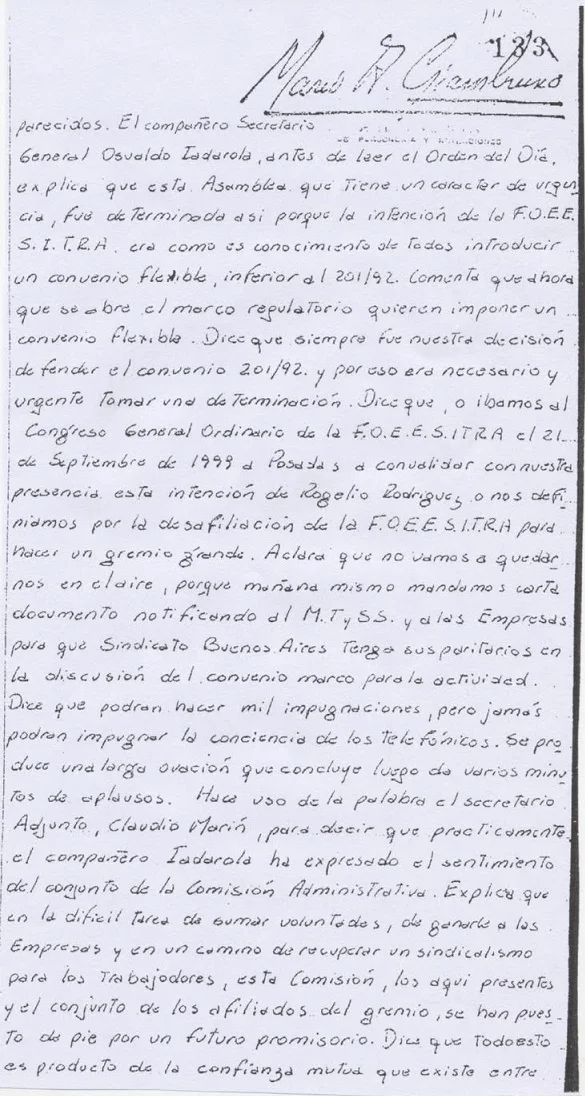 133
Mario A. Giambruno
parecidos. El compañero Secretario
General Osvaldo Iadarola, antes de leer el Orden del Día,
explica que esta Asamblea que tiene un caracter de urgen
cia, fue determinada asi porque la intención de la F.O.E.E.
S.I.T.R.A. era como es conocimiento de todos introducir
un convenio flexible, inferior al 201/92. Comenta que ahora
que se abre el marco regulatorio quieren imponer un
convenio flexible. Dice que siempre fue nuestra decisión
defender el convenio 201/92. y por eso era necesario y
urgente tomar una determinación. Dice que, o ibamos al
Congreso General Ordinario de la F.O.E.E.S.ITRA el 21
de Septiembre de 1999 a Posadas a convalidar con nuestra
presencia esta intención de Rogelio Rodriguez o nos defi-
niamos por la desafiliación de la F.O.E.E.S.I.TRA para
hacer un gremio grande. Aclara que no vamos a quedar
nos en el aire, porque mañana mismo mandamos carta
documento notificando al M.TySS. y a las Empresas
para que Sindicato Buenos Aires Tenga sus paritarios en
la discusión del convenio marco para la actividad.
Dice que podran hacer mil impugnaciones, pero jamás
podran impugnar la conciencia de los Telefónicos. Se pro
duce una larga ovación que concluye luego de varios minu
tos de aplausos. Hace uso de la palabra el secretario
Adjunto, Claudio Marín, para decir que practicamente
el compañero Iadarola ha expresado el sentimiento
del conjunto de la Comisión Administrativa. Explica que
en la dificil tarea de sumar voluntades, de ganarle a las
Empresas y en un camino de recuperar un sindicalismo
para los Trabajadores, esta Comisión, los aqui presentes
y el conjunto de los afiliados del gremio, se han pues-
to de pie por un futuro promisorio. Dice que todo esto
es producto de la confianza mutua que existe entre